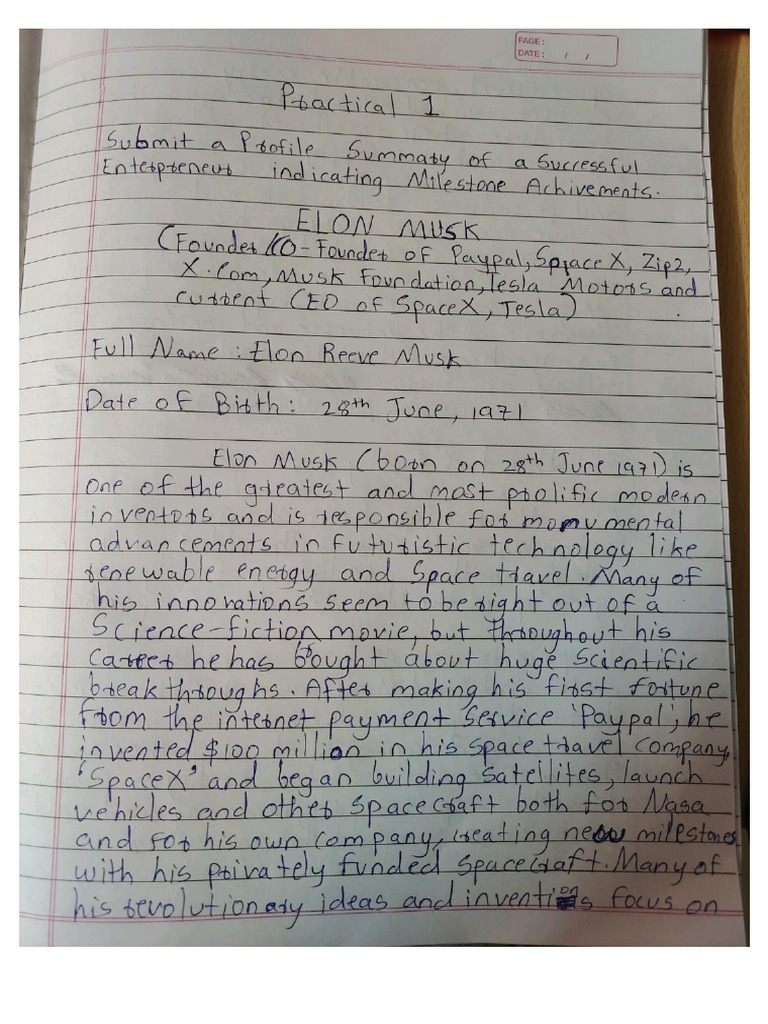 PAGE:
DATE: / /
Practical 1
Submit a Profile Summary of a Successful
Enterpreneur indicating Milestone Achivements.
ELON MUSK
(Founder/CO-Founder of Paypal, SpaceX, Zip2,
X.Com, Musk Foundation, Tesla Motors and
current CEO of SpaceX, Tesla)
Full Name : Elon Reeve Musk
Date of Birth: 28th June, 1971
Elon Musk (born on 28th June 1971) is
one of the greatest and most prolific modern
inventors and is responsible for monumental
advancements in futuristic technology like
renewable energy and Space travel. Many of
his innovations seem to be right out of a
Science-fiction movie, but throughout his
career he has brought about huge Scientific
breakthroughs. After making his first fortune
from the internet payment service 'Paypal', he
invented $100 million in his space travel company,
'SpaceX' and began building satellites, launch
vehicles and other spacecraft both for Nasa
and for his own company, creating new milestones
with his privately funded spacecraft. Many of
his revolutionary ideas and inventions focus on